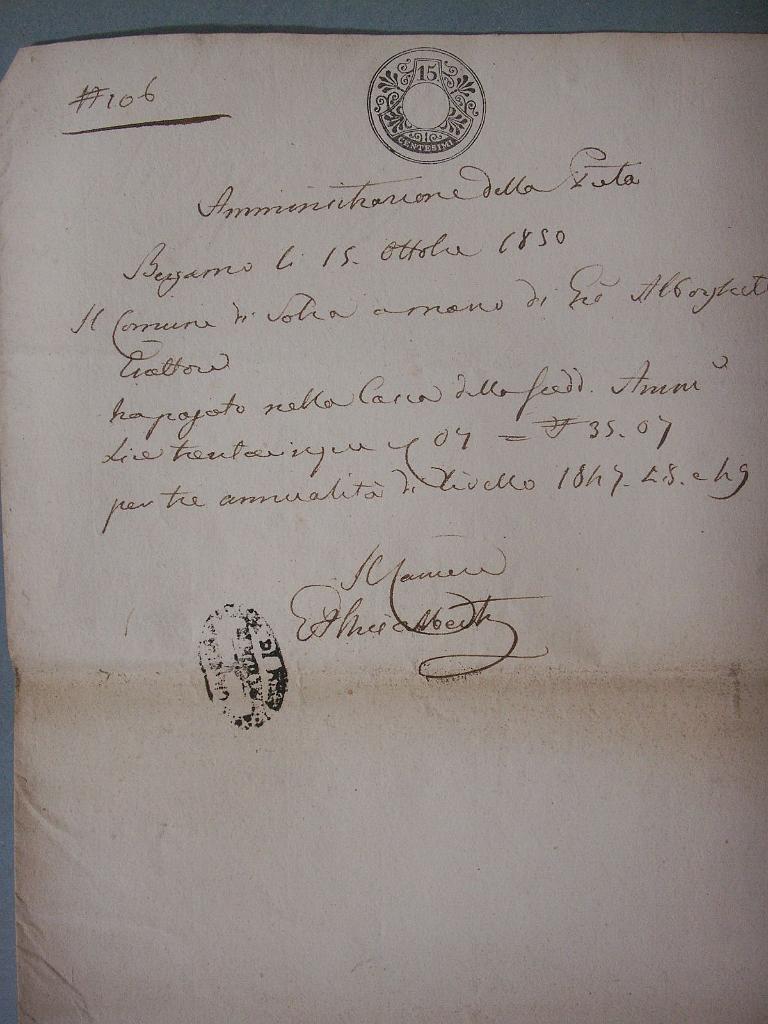 # 106
15
CENTESIMI
Amministrazione della Pietà
Bergamo li 15. Ottobre 1850
Il Comune di Solza a mano di Gio Alborghet
Esattore
ha pagato nella Cassa della sudd. Amm.e
Lire trentacinque e 07 = # 35.07
per tre annualità di Livello 1847. 48. e 49
Il Cassiere